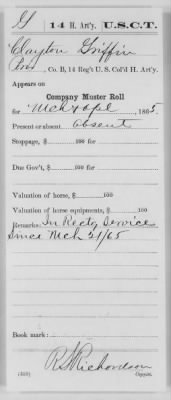 G | 14 H. Art'y. | U.S.C.T.
Clayton Griffin
Pvt, Co. B, 14 Reg't U. S. Col'd H. Art'y.
Appears on
Company Muster Roll
for Mch & Apl, 1865
Present or absent Absent
Stoppage, $ 100 for
Due Gov't, $ 100 for
Valuation of horse, $ 100
Valuation of horse equipments, $ 100
Remarks: In Rectg Service
Since Mch 21/65
Book mark:
R S Richardson
(359) Copyist.